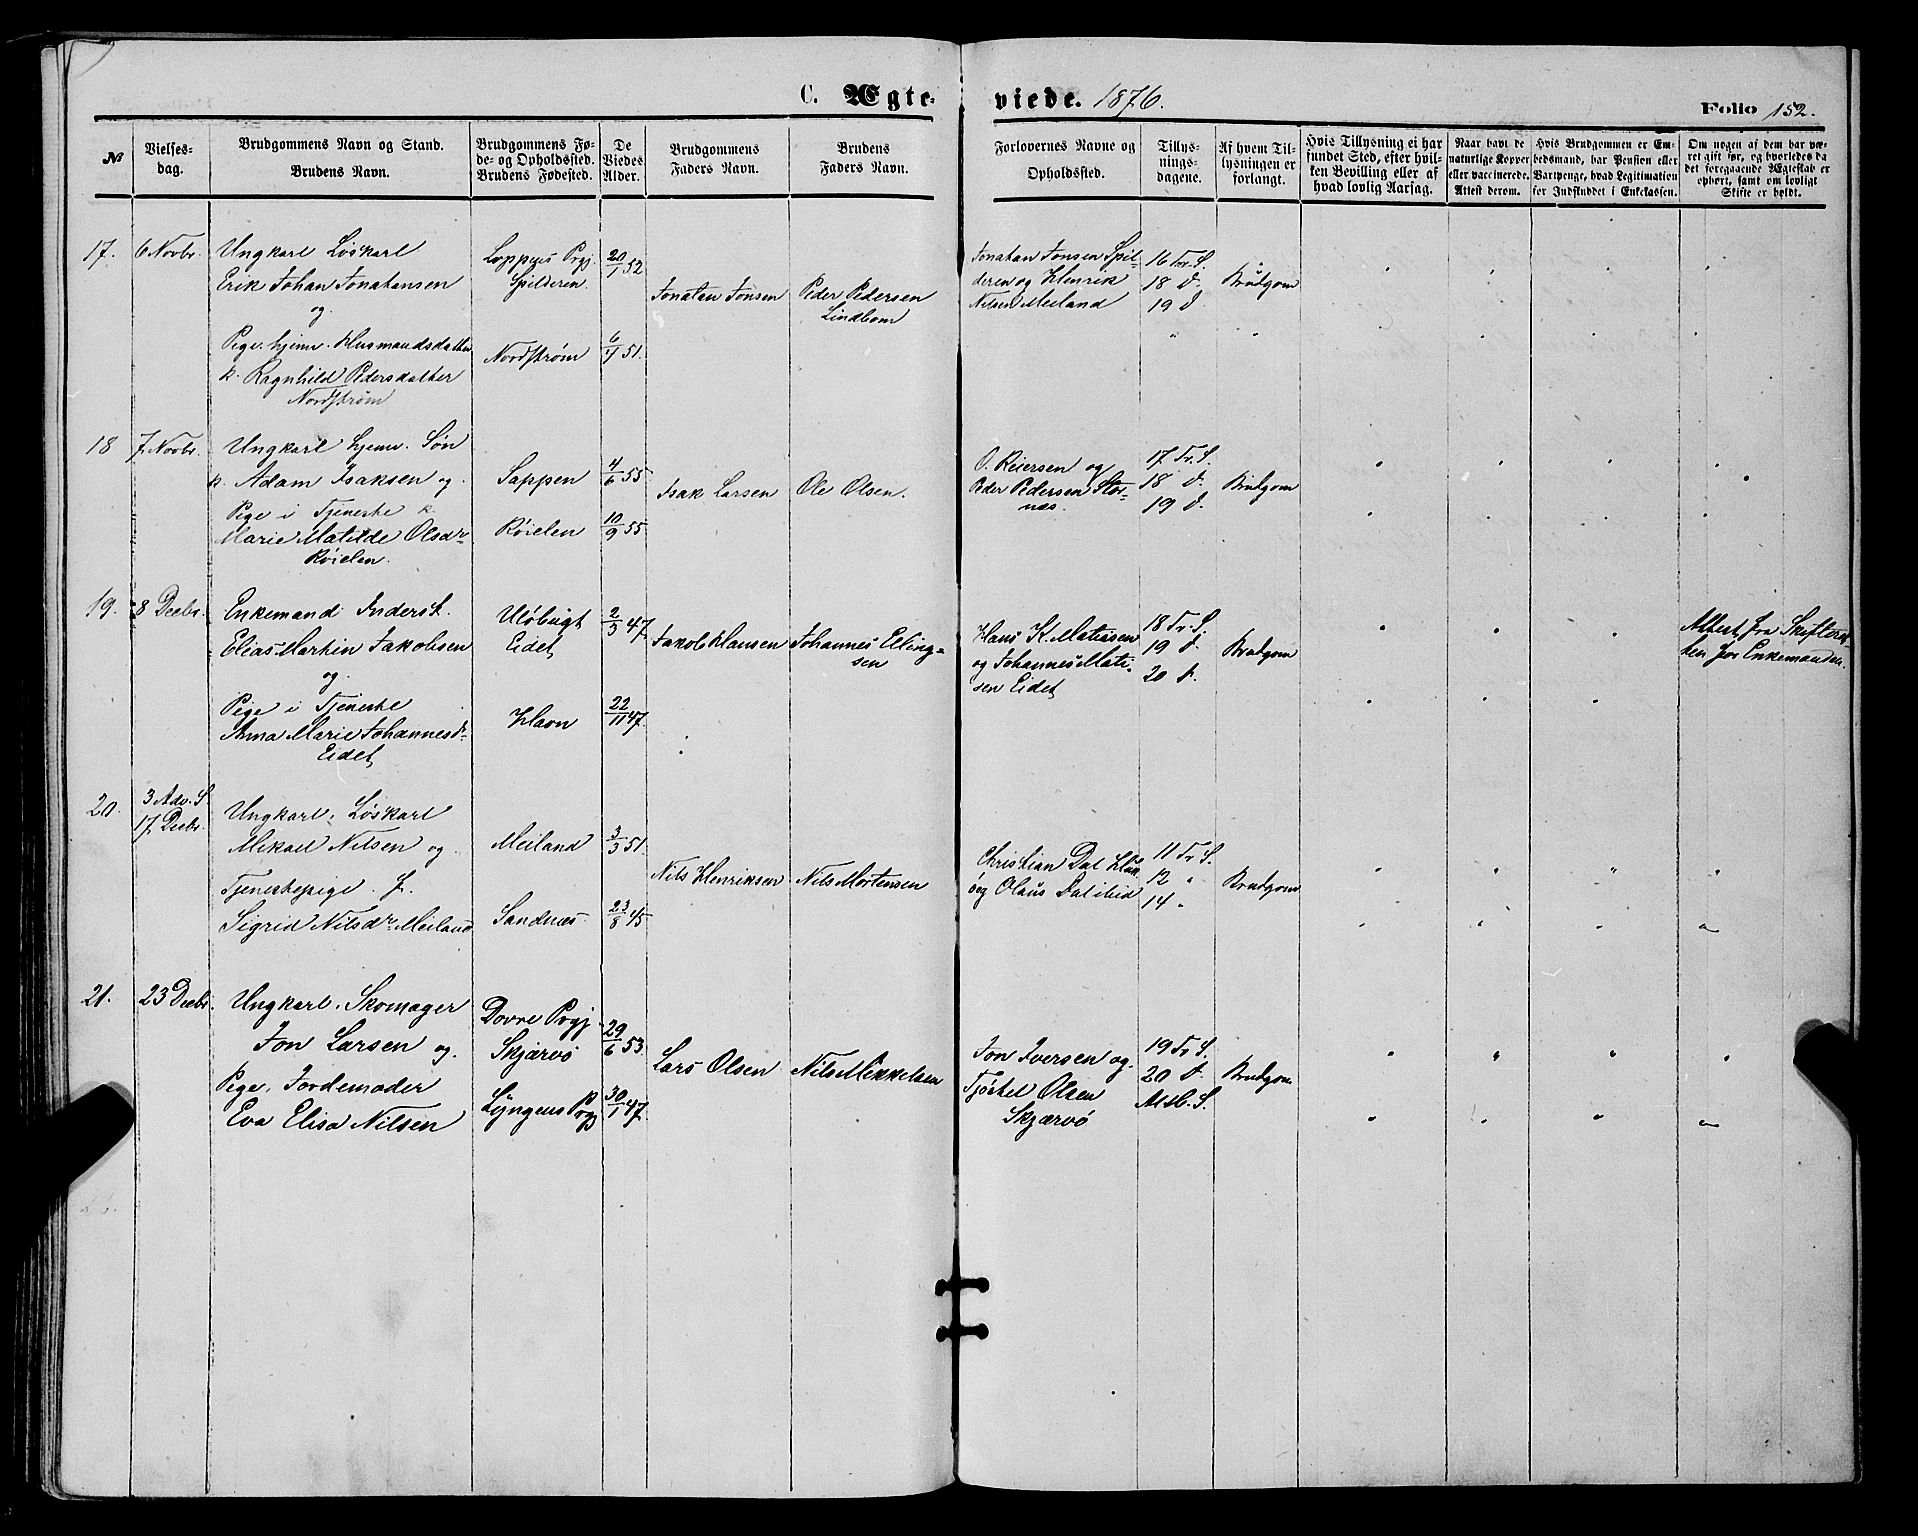 C. Ægte- viede. 1876.
Folio 152.
№
Vielses-
dag.
Brudgommens Navn og Stand.
Brudens Navn.
Brudgommens Fø-
de- og Opholdssted.
Brudens Fødested.
De
Viedes
Alder.
Brudgommens
Faders Navn.
Brudens
Faders Navn.
Forlovernes Navne og
Opholdssted.
Tillys-
nings-
dagene.
Af hvem Til-
lysningen er
forlangt.
Hvis Tillysning ei har
fundet Sted, efter hvil-
ken Bevilling eller af
hvad lovlig Aarsag.
Naar havt de
naturlige Kopper
eller vaccinerede.
Attest derom.
Hvis Brudgommen er Em-
bedsmand, har Pension eller
Vartpenge, hvad Legitimation
for Indskuddet i Enkekassen.
Om nogen af dem har væ-
ret gift før, og hvorledes da
det foregaaende Ægteskab er
ophørt, samt om lovligt
Skifte er holdt.
17. 6 Novbr.
Ungkarl Løskarl
Erik Johan Jonatansen
og
Pige. hjemv. Husmandsdatter
k. Ragnhild Pedersdatter
Nordstrøm
Loppens Prgj.
Spilderen.
Nordstrøm
20/1 52
6/4 51.
Jonatan Jonsen
Peder Pedersen
Lindbom
Jonatan Jonsen Spil-
deren og Henrik
Nilsen Meiland
16 Tr. S.
18 d.
19 d
Brudgom
18 7 Novbr.
Ungkarl hjemv. Søn
k. Adam Isaksen og
Pige i Tjeneste k.
Marie Matilde Olsdr
Røielen.
Sappen
Røielen
4/6 55
10/9 55
Isak Larsen
Ole Olsen.
O. Reiersen og
Peder Pedersen Stor-
næs.
17 Tr. S.
18 d.
19 d.
Brudgom
19. 8 Decbr.
Enkemand Inderst.
Elias Martin Jakobsen
og
Pige i Tjeneste
Anna Marie Johannesdr
Eidet
Uløbugt
Eidet
Havn
2/3 47.
22/11 47.
Jakob Hansen
Johannes Elling-
sen
Hans K. Matisen
og Johannes Mati-
sen Eidet
18 Tr. S.
19 d
20 d.
Brudgom
Attest fra Skifteret-
ten for Enkemanden.
20. 3 Adv. S
17 Decbr.
Ungkarl, Løskarl
Mikael Nilsen og
Tjenestepige.
Sigrid Nilsdr Meiland
Meiland
Sandnæs
3/3 51.
23/8 45
Nils Henriksen
Nils Mortensen
Christian Dal
og Olaus Dal ibid
11 Tr S.
12 "
14 "
Brudgom
21. 23 Decbr.
Ungkarl, Skomager
Jon Larsen og.
Pige, Jordemoder
Eva Elisa Nilsen
Dovre Prgj
Skjærvø
Lyngens Prgj
29/6 53.
30/1 47.
Lars Olsen
Nils Mikkelsen
Jon Iversen og
Tjøstel Olsen
Skjærvø
19 Tr S.
20 d.
Alsb. S.
Brudgom